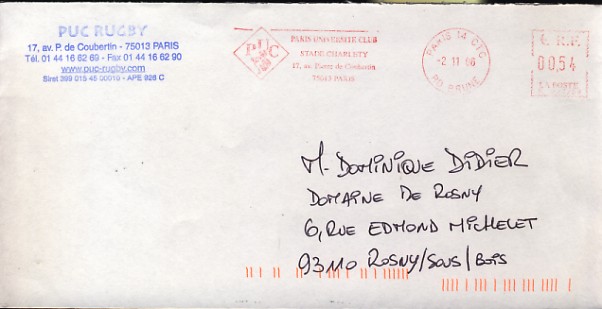 PUC RUGBY
17, av. P. de Coubertin - 75013 PARIS
Tél. 01 44 16 62 69 - Fax 01 44 16 62 90
www.puc-rugby.com
Siret 399 015 45 00019 - APE 926 C
PUC
PARIS UNIVERSITE CLUB
STADE CHARLETY
17, av. Pierre de Coubertin
75013 PARIS
PARIS 14 CTC
-2 11 06
RD BRUNE
€ R.F.
0054
LA POSTE
M. DOMINIQUE DIDIER
DOMAINE DE ROSNY
6, RUE EDMOND MICHELET
93110 ROSNY/SOUS/BOIS